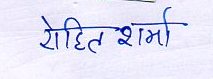 रोहित शर्मा